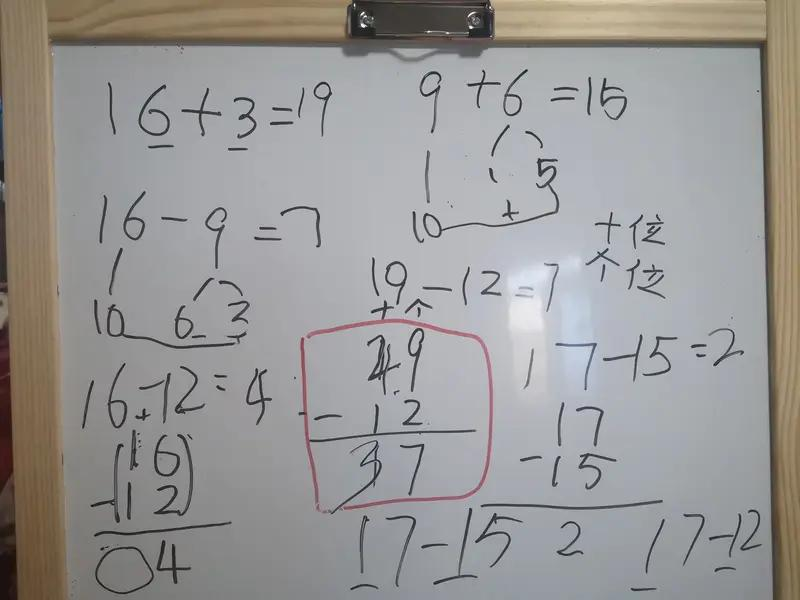 16+3=19
9+6=15
1 5
+
10
16-9=7
10 6 3
十位
个位
19-12=7
十 个
49
-12
37
17-15=2
17
-15
2
16-12=4
16
-12
04
17-15
17-12